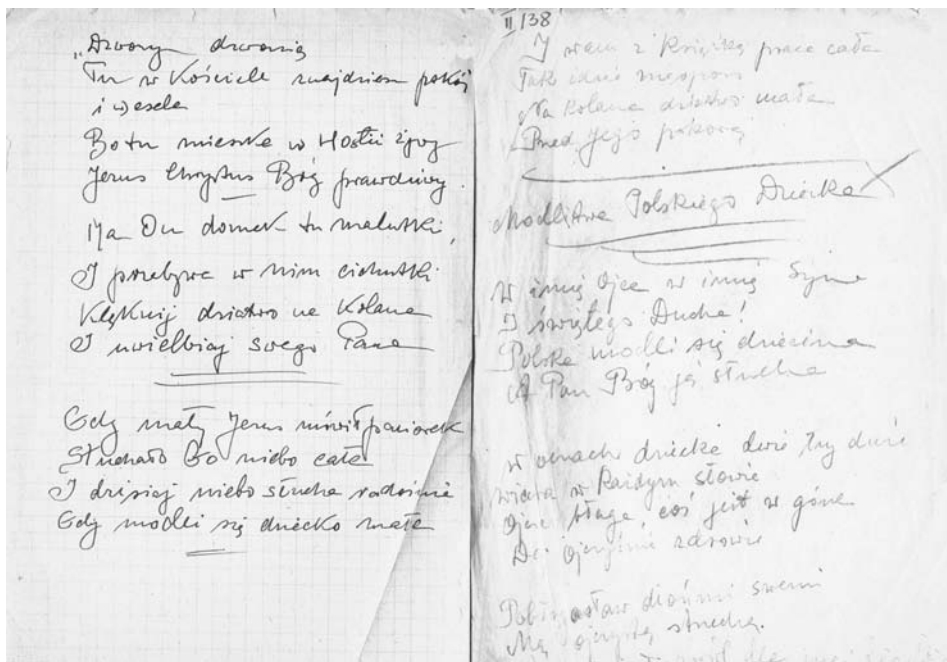 „Dzwony dzwonią
Tu w Kościele znajdziem pokój
i wesele
Bo tu mieszka w Hostii żywy
Jezus Chrystus Bóg prawdziwy.
Ma On domek tu malutki,
I przebywa w nim cichutki
Klęknij dziatwo na Kolana
I uwielbiaj swego Pana
Gdy mały Jezus mówił paciorek
Słuchało Go niebo całe
I dzisiaj niebo słucha radośnie
Gdy modli się dziecko małe
II/38
I wam z Książką praca cała
Tak idzie
Na kolana dziatwo mała
Przed Jego
Modlitwa Polskiego Dziecka
W imię Ojca w imię Syna
I świętego Ducha!
Polska modli się dziecina
A Pan Bóg ją słucha
W oczach dziecka dwie łzy duże
wiara w Każdym słowie
Ojcze błaga, coś jest w górze
Daj Ojczyźnie zdrowie
Pobłogosław dłońmi swemi
Mą ojczystą strzechę.